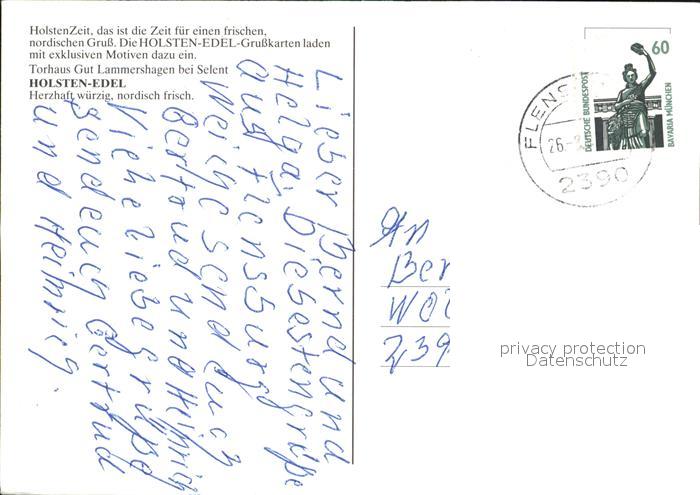 HolstenZeit, das ist die Zeit für einen frischen,
nordischen Gruß. Die HOLSTEN-EDEL-Grußkarten laden
mit exklusiven Motiven dazu ein.
Torhaus Gut Lammershagen bei Selent
HOLSTEN-EDEL
Herzhaft würzig, nordisch frisch.
Lieber Bernd und
Helga. Die besten grüße
aus Flensburg
Weiche send euch
Bertoud und Heinrich
Viehe liebe grüße
senden euch Gertrud
und Heinrig.
60
DEUTSCHE BUNDESPOST
BAVARIA MÜNCHEN
FLENS
26.-
2390
An
Ber
WO
239
privacy protection
Datenschutz